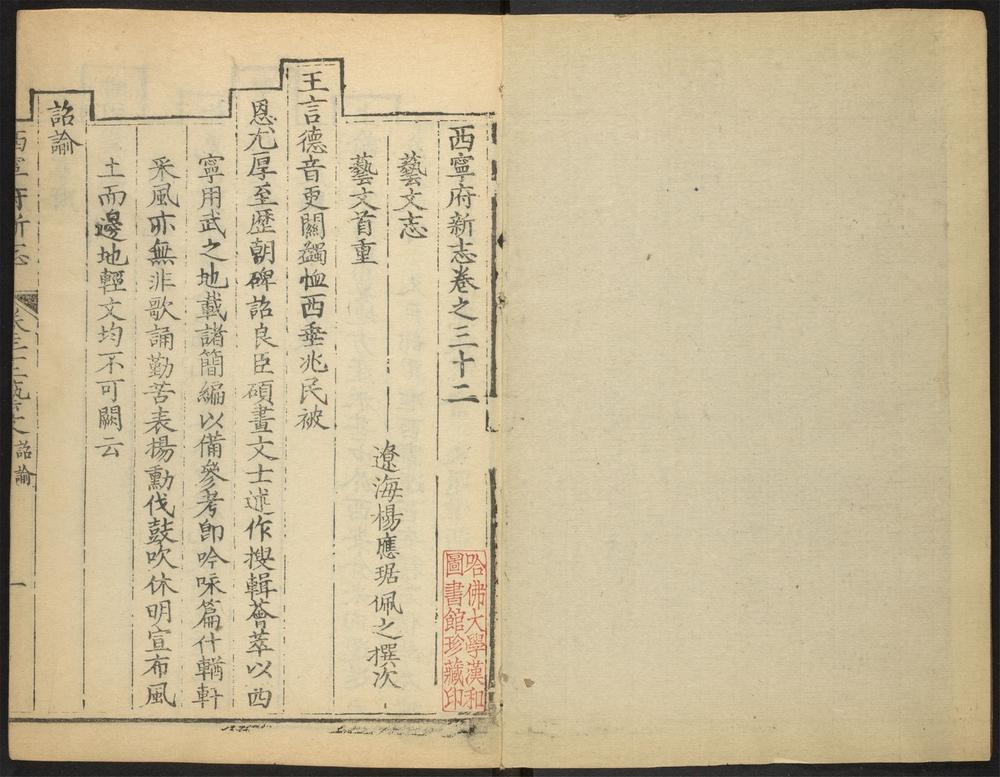 西寧府新志卷之三十二
哈佛大學漢和
圖書館珍藏印
藝文志
遼海楊應琚佩之撰次
藝文首重
王言德音更關蠲恤西垂兆民被
恩尤厚至歷朝碑詔良臣碩畫文士述作搜輯薈萃以西
寧用武之地載諸簡編以備參考卽吟咏篇什輶軒
采風亦無非歌誦勤苦表揚勳伐鼓吹休明宣布風
土而邊地輕文均不可闕云
詔諭
西寧府新志
卷三十二藝文
詔諭
一